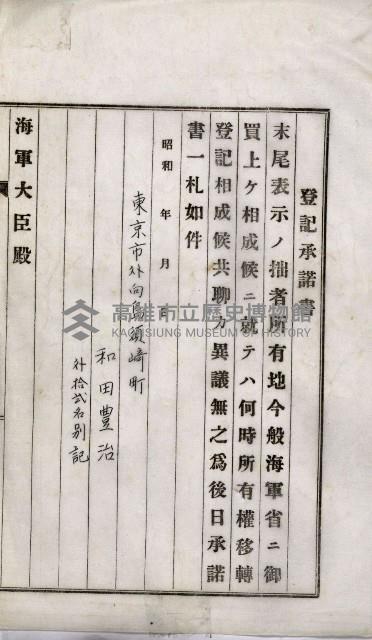 登記承諾書
末尾表示ノ拙者所有地今般海軍省ニ御
買上ケ相成候ニ就テハ何時所有權移轉
登記相成候共聊カ異議無之爲後日承諾
書一札如件
昭和 年 月 日
東京市外向島須崎町
和田豊治
外拾弐名別記
海軍大臣殿
高雄市立歷史博物館
KAOHSIUNG MUSEUM OF HISTORY